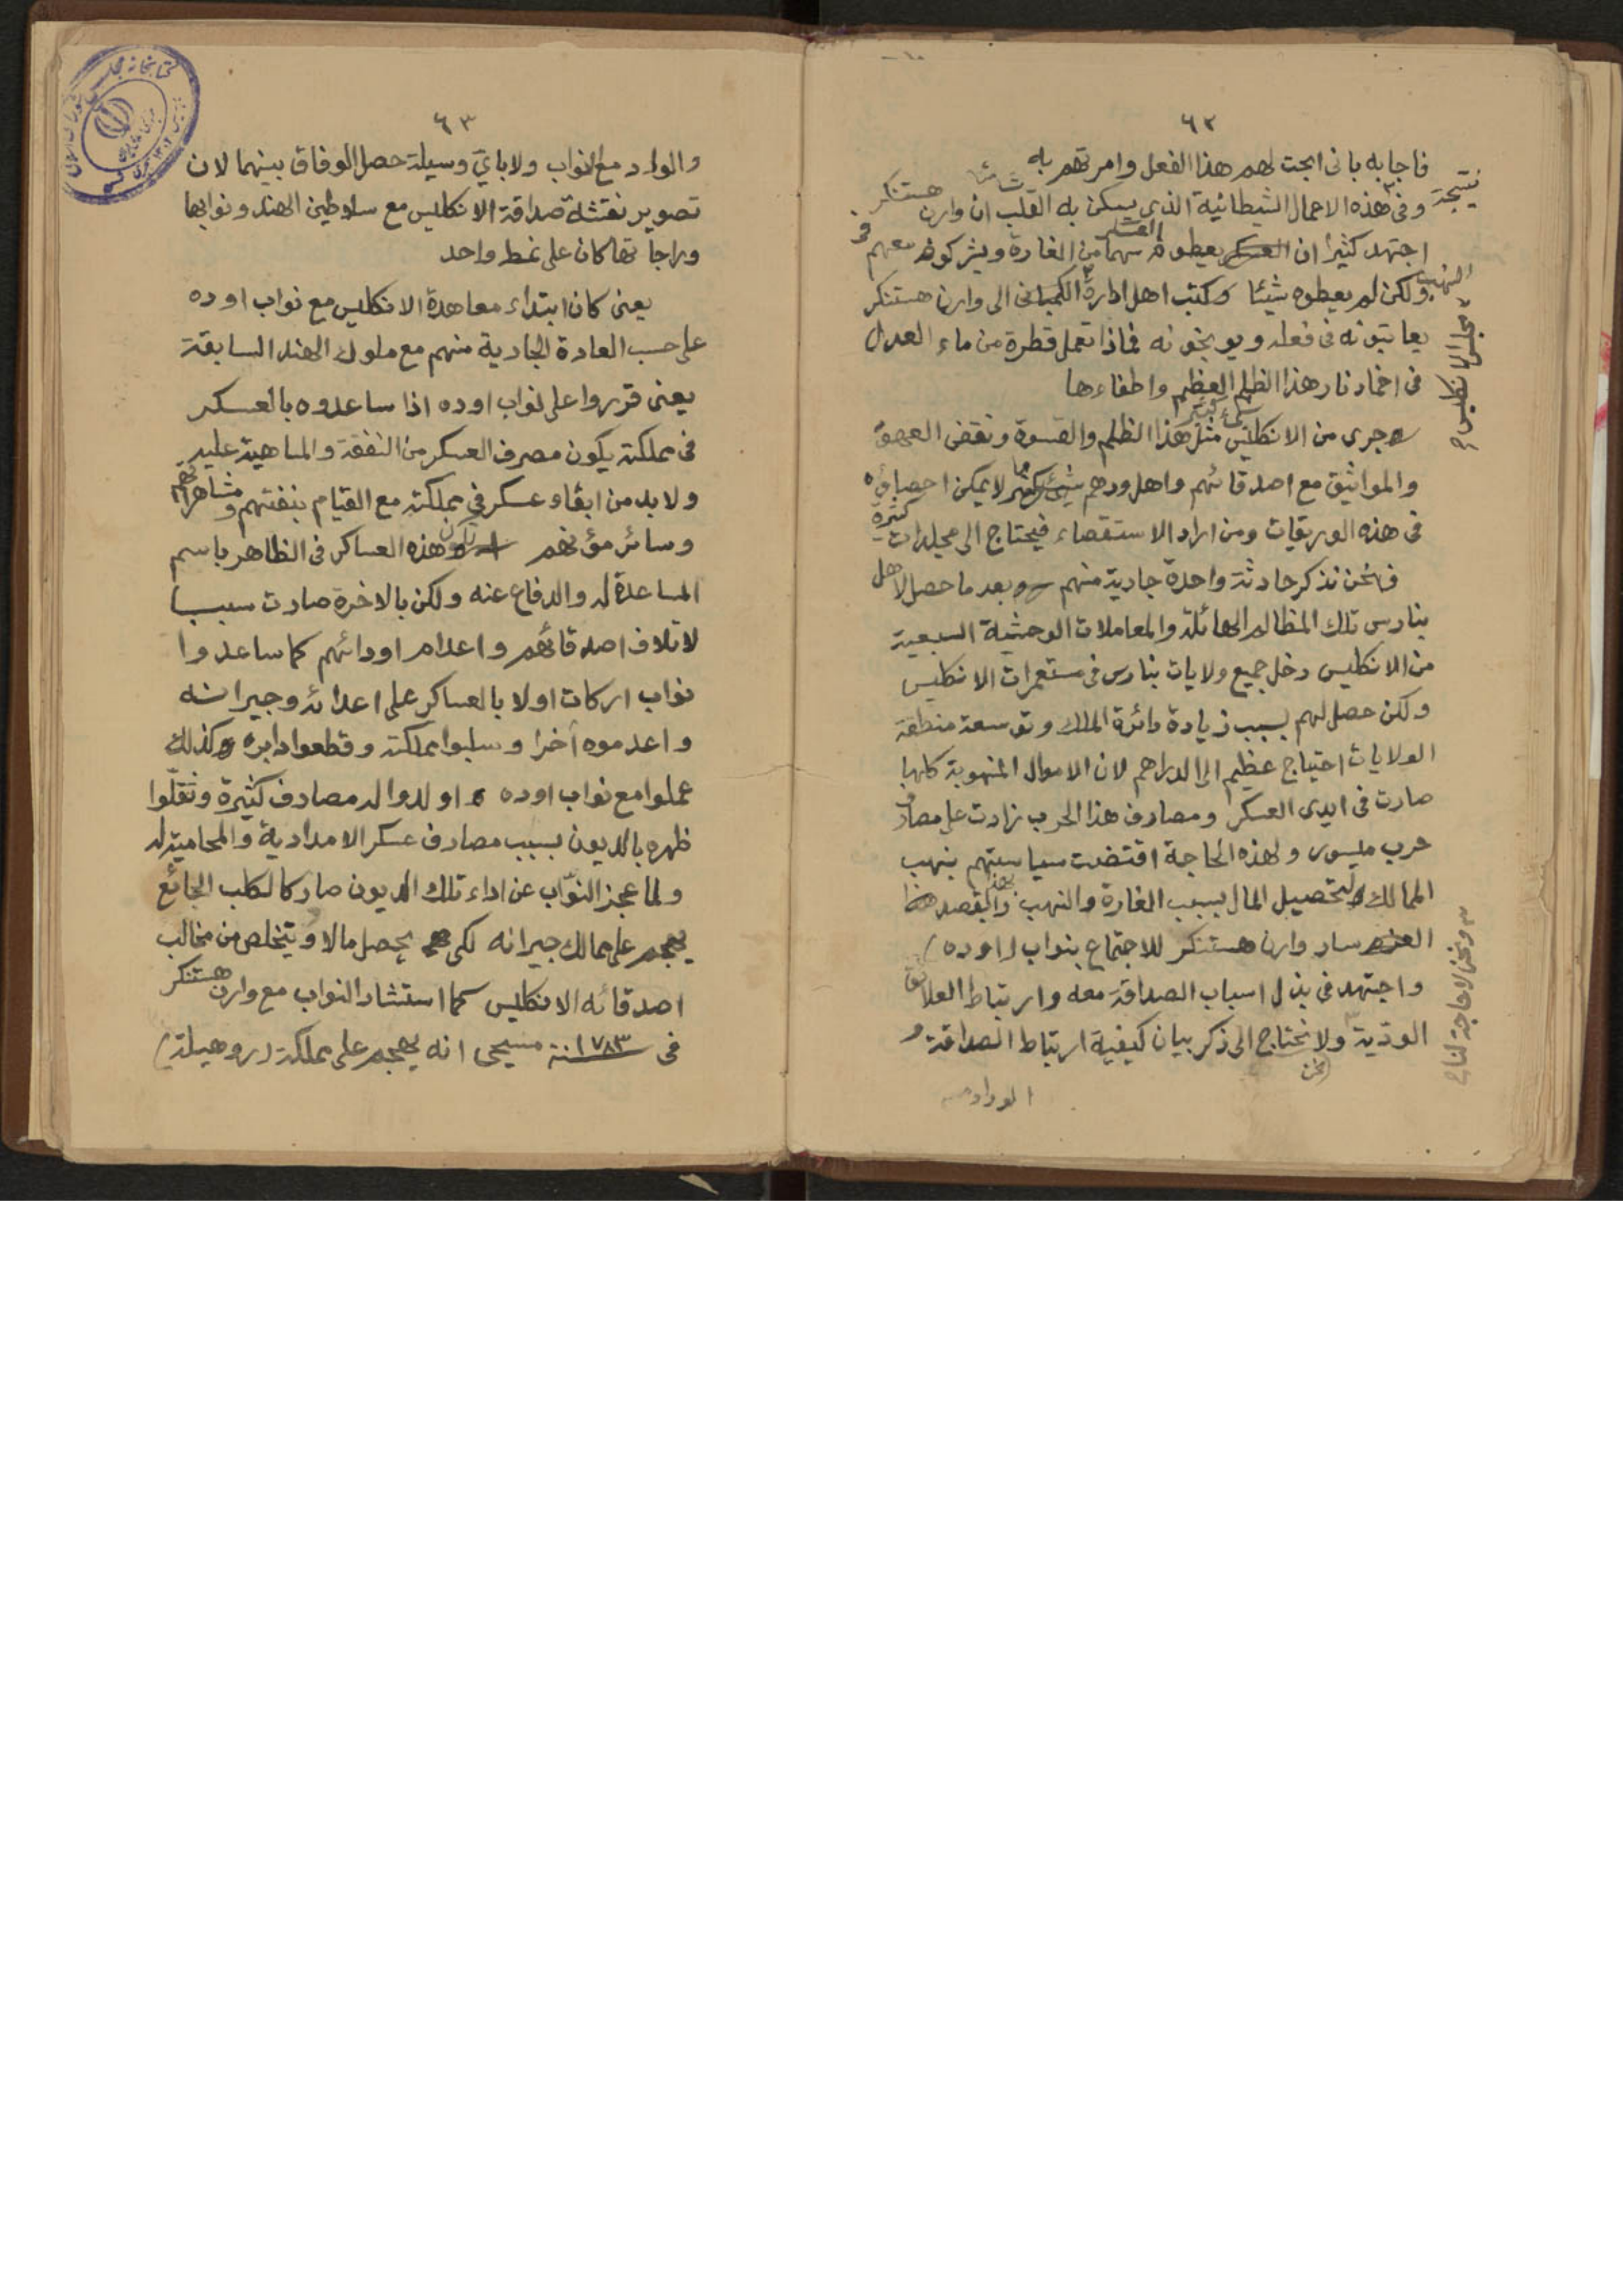 ٦٢
فاجابه بانى ابحت لهم هذا الفعل وامرتهم به
نتيجة وفى هذه الاعمال الشيطانية الذى يسكن به القلب ان وارن هستنكر
اجتهد كثيرا ان العسكر يعطوه سهما من الغارة ويشركوه معهم فى
النهب ولكن لم يعطوه شيئا وكتب اهل ادارة الكمبانى الى وارن هستنكر
يعاتبونه فى فعله ويوبخونه فماذا تعمل قطرة من ماء العدل
فى اخماد نار هذا الظلم العظيم واطفاءها
جرى من الانكليس مثل هذا الظلم والقسوة ونقض العهود
والمواثيق مع اصدقائهم واهل ودهم لا يمكن احصاؤه
فى هذه الوريقات ومن اراد الاستقصاء فيحتاج الى مجلدات كثيرة
فنحن نذكر حادثة واحدة جارية منهم وبعد ما حصل لاهل
بنارس تلك المظالم الهائلة والمعاملات الوحشية السبعية
من الانكليس دخل جميع ولايات بنارس فى مستعمرات الانكليس
ولكن حصل لهم بسبب زيادة دائرة الملك وتوسعة منطقة
الولايات احتياج عظيم الى الدراهم لان الاموال المنهوبة كلها
صارت فى ايدى العسكر ومصارف هذا الحرب زادت على مصارف
حرب ميسور ولهذه الحاجة اقتضت سياستهم بنهب
الممالك لتحصيل المال بسبب الغارة والنهب وبهذا القصد
سار وارن هستنكر للاجتماع بنواب (اوده)
واجتهد فى بذل اسباب الصداقة معه وارتباط العلائق
الودية ولا نحتاج الى ذكر بيان كيفية ارتباط الصداقة و
نحن
مجلس الانكليس
ونحن لا حاجة لنا
٦٣
والوداد مع النواب ولا باي وسيلة حصل الوفاق بينهما لان
تصوير نقشة صداقة الانكليس مع سلاطين الهند ونوابها
وراجاتها كان على نمط واحد
يعنى كان ابتداء معاهدة الانكليس مع نواب اوده
على حسب العادة الجارية منهم مع ملوك الهند السابقة
يعنى قرروا على نواب اوده اذا ساعدوه بالعسكر
فى مملكته يكون مصرف العسكر من النفقة والماهية عليه
ولا بد من ابقاء عسكر فى مملكته مع القيام بنفقتهم ومشاهراتهم
وسائر مؤنهم تكون هذه العساكر فى الظاهر باسم
المساعدة له والدفاع عنه ولكن بالاخرة صارت سببا
لاتلاف اصدقائهم واعدام اودائهم كما ساعدوا
نواب اركات اولا بالعساكر على اعدائه وجيرانه
واعدموه أخرا وسلبوا مملكته وقطعوا دابره وكذلك
عملوا مع نواب اوده اولدوا له مصارف كثيرة وثقلوا
ظهره بالديون بسبب مصارف عسكر الامدادية والمحامية له
ولما عجز النواب عن اداء تلك الديون صار كالكلب الجائع
يهجم على ممالك جيرانه لكى يحصل مالا ويتخلص من مخالب
اصدقائه الانكليس كما استشار النواب مع وارن هستنكر
فى سنة ١٧٨٣ مسيحى انه يهجم على مملكة (روهيلة)